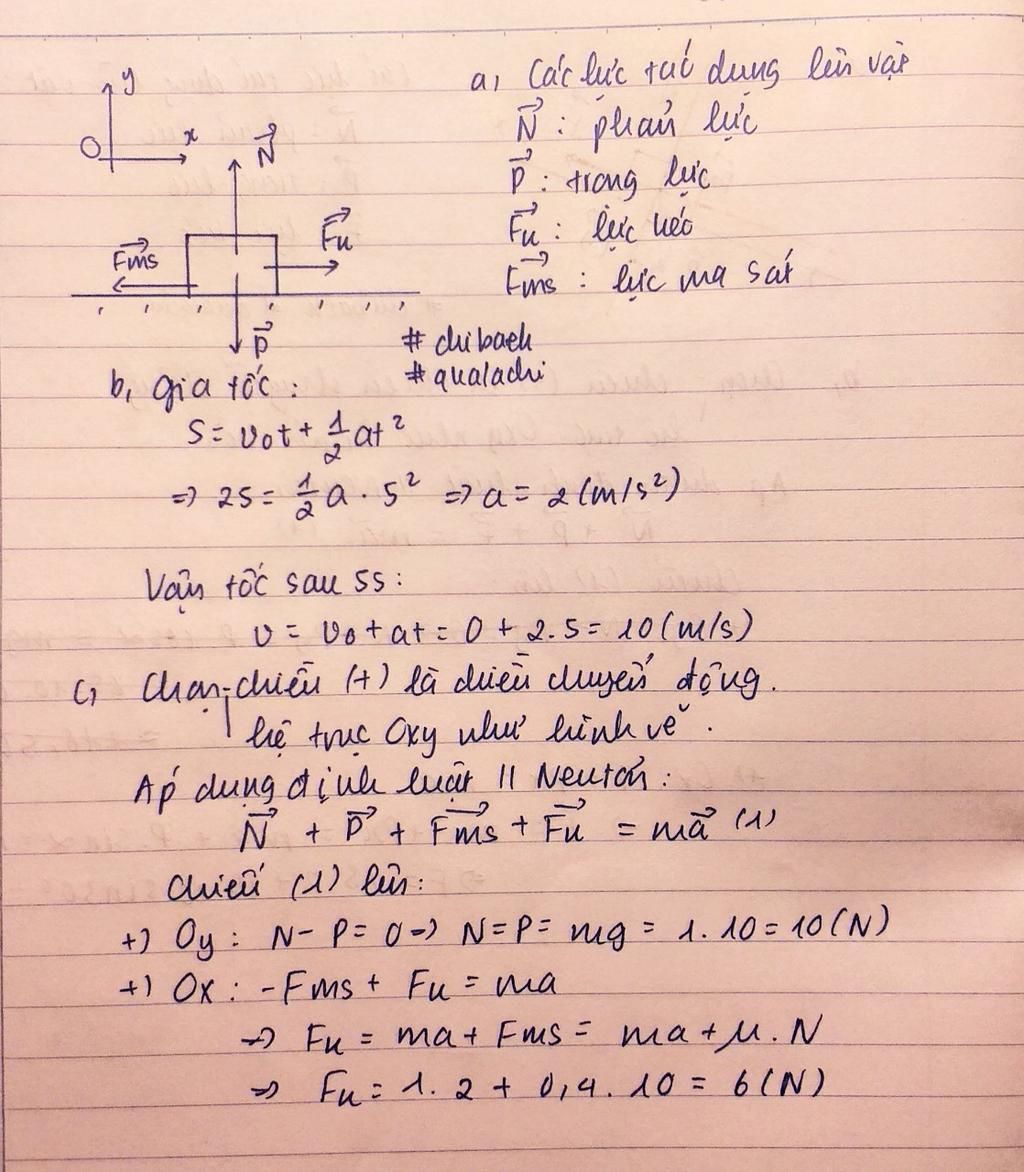 y
a, Các lực tác dụng lên vật
O x
N⃗
N⃗ : phản lực
P⃗ : trọng lực
Fms⃗ Fk⃗
Fk⃗ : lực kéo
Fms⃗ : lực ma sát
P⃗
# chibach
# qualachi
b, gia tốc :
S = v₀t + 1/2 at²
=> 25 = 1/2 a . 5² => a = 2 (m/s²)
Vận tốc sau 5s :
v = v₀ + at = 0 + 2.5 = 10 (m/s)
c, Chọn chiều (+) là chiều chuyển động.
hệ trục Oxy như hình vẽ .
Áp dụng định luật II Newton :
N⃗ + P⃗ + Fms⃗ + Fk⃗ = ma⃗ (1)
Chiếu (1) lên :
+) Oy : N - P = 0 => N = P = mg = 1. 10 = 10 (N)
+) Ox : - Fms + Fk = ma
=> Fk = ma + Fms = ma + μ . N
=> Fk = 1. 2 + 0,4 . 10 = 6 (N)